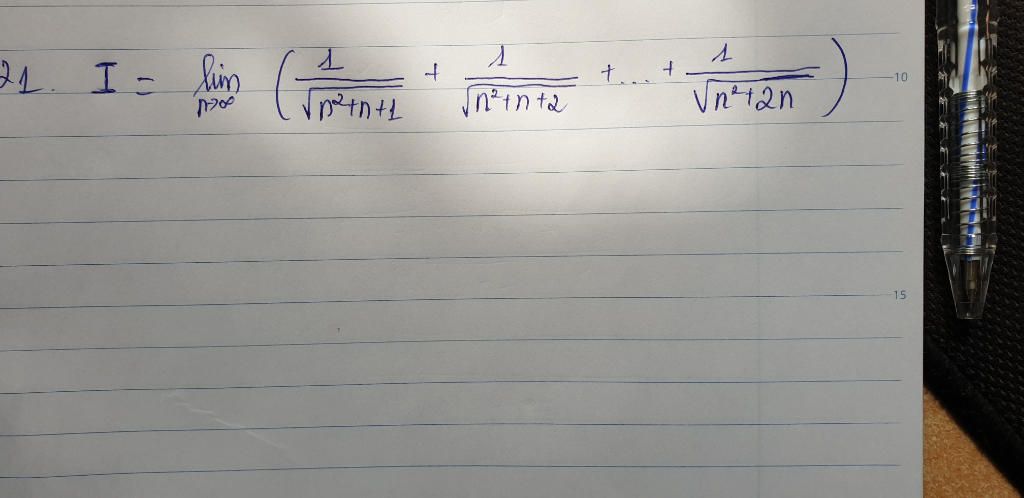 21. I = lim n→∞ ( 1/√(n²+n+1) + 1/√(n²+n+2) + ... + 1/√(n²+2n) )
10
15